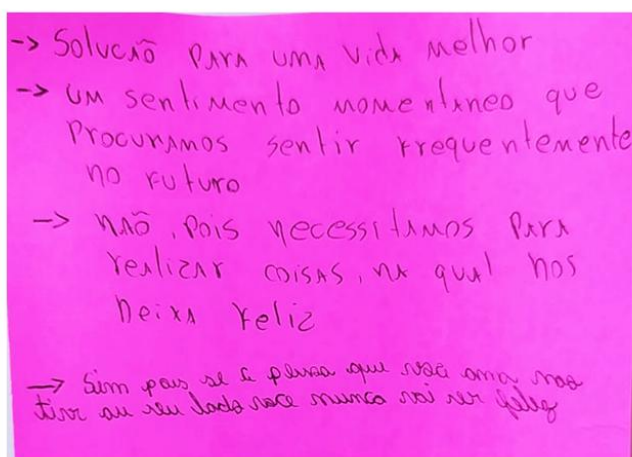 -> Solucão para uma vida melhor
-> um sentimento momentaneo que
procuramos sentir frequentemente
no futuro
-> não, pois necessitamos para
realizar coisas, na qual nos
deixa feliz
-> Sim pois se a pessoa que você ama não
tive au seu lado voce nunca vai ser feliz